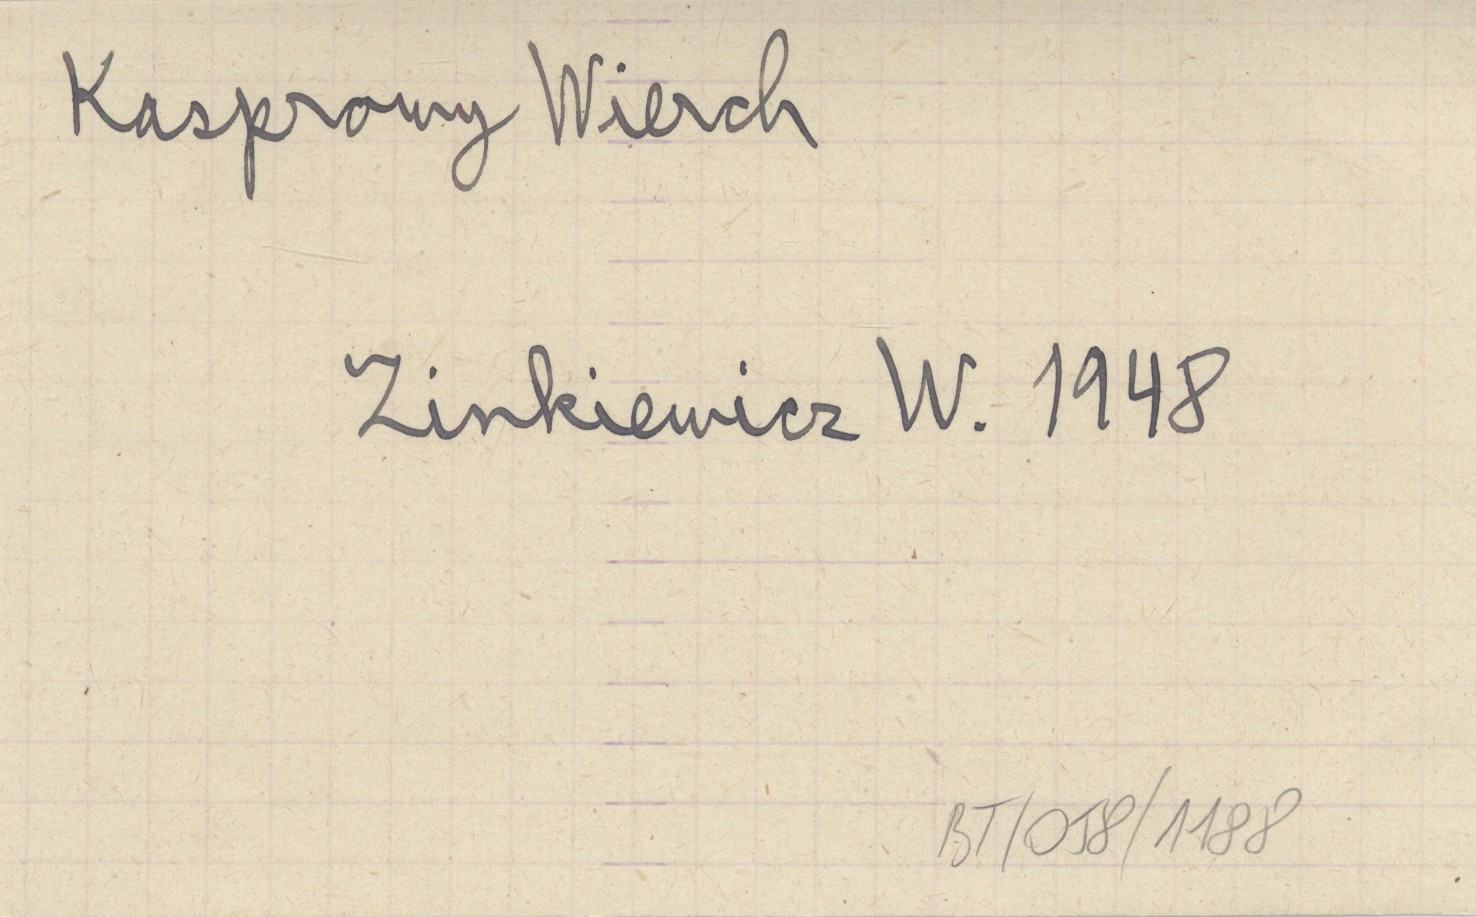 Kasprowy Wierch
Zinkiewicz W. 1948
BT/058/1188